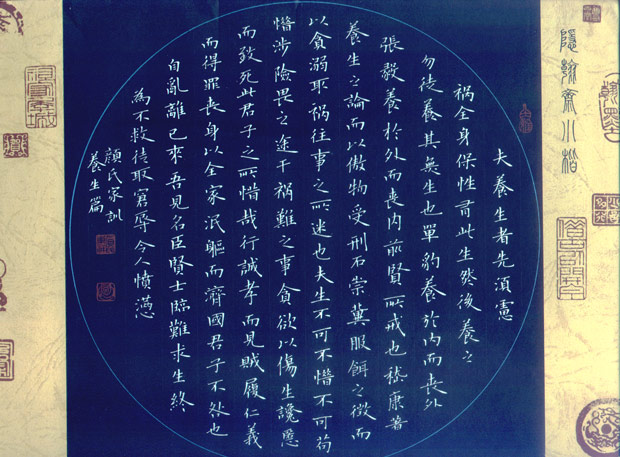 隱翰齋小楷
夫養生者先湏慮
祸全身保性有此生然後養之
勿徒養其無生也單豹養於内而喪外
張毅養於外而喪内前賢所戒也嵇康著
養生之論而以傲物受刑石崇冀服餌之徵而
以貪溺取祸往事之所迷也夫生不可不惜不可苟
惜涉險畏之途干祸難之事貪欲以傷生讒慝
而致死此君子之所惜哉行誠孝而見賊履仁義
而得罪喪身以全家泯軀而濟國君子不咎也
自亂離已來吾見名臣賢士臨難求生終
為不救徒取窘辱令人憤懣
顏氏家訓
養生篇